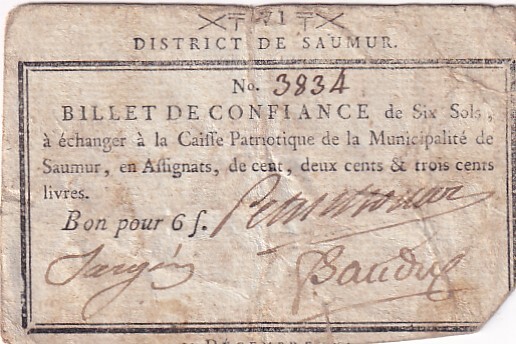 DISTRICT DE SAUMUR.
No. 3834
BILLET DE CONFIANCE de Six Sols,
à échanger à la Caiſſe Patriotique de la Municipalité de
Saumur, en Aſſignats, de cent, deux cents & trois cents
livres.
Bon pour 6 ſ.